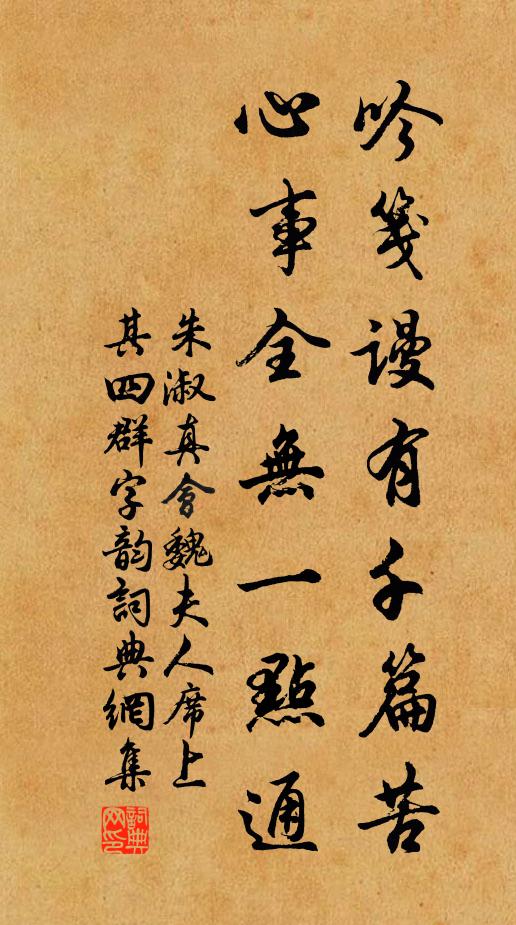 吟箋謾有千篇苦
心事全無一點通
朱淑真會魏夫人席上
其四群字韵詞典網集
詞典网印